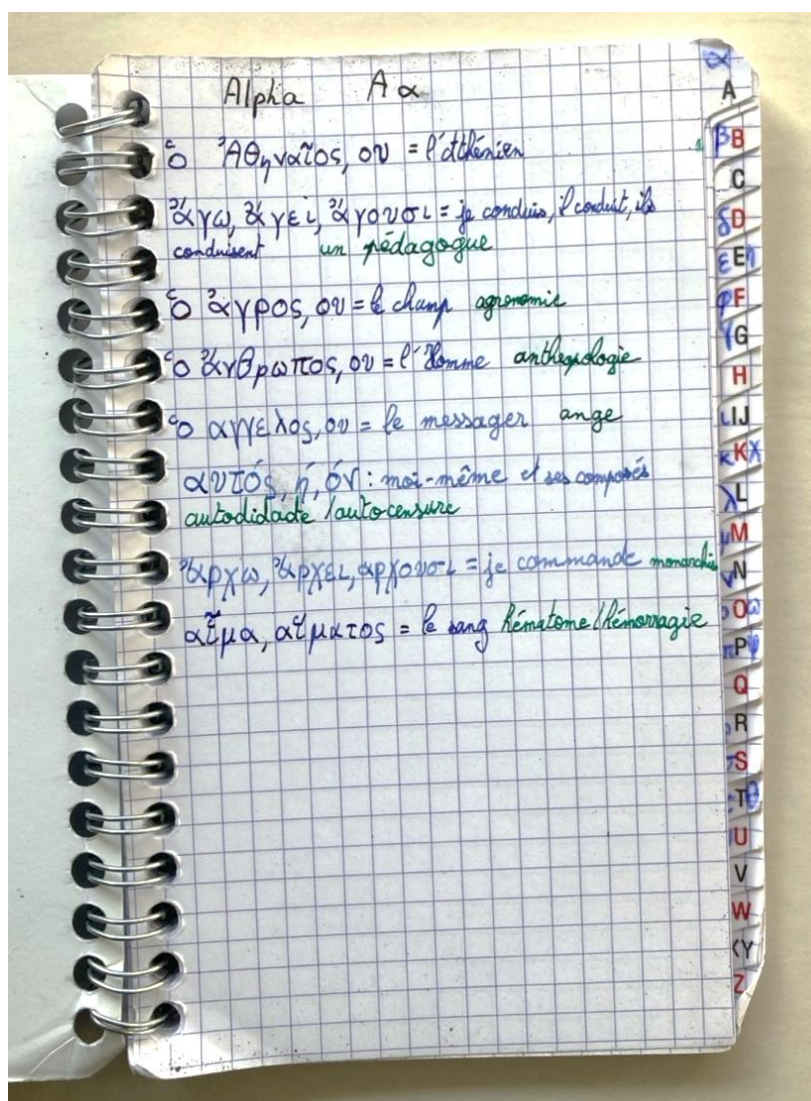 Alpha A α
ὁ Ἀθηναῖος, ου = l'athénien
ἄγω, ἄγει, ἄγουσι = je conduis, il conduit, ils
conduisent un pédagogue
ὁ ἀγρος, ου = le champ agronomie
ὁ ἄνθρωπος, ου = l'Homme anthropologie
ὁ αγγελος, ου = le messager ange
αυτός, ή, όν : moi-même et ses composés
autodidacte / autocensure
ἄρχω, ἄρχει, αρχουσι = je commande monarchie
αἷμα, αἵματος = le sang hématome / hémorragie
α
A
β B
C
δ D
ε E η
φ F
γ G
H
ι IJ
κ K χ
λ L
μ M
ν N
ο O ω
π P ψ
Q
R
S
T θ
U
V
W
XY
Z